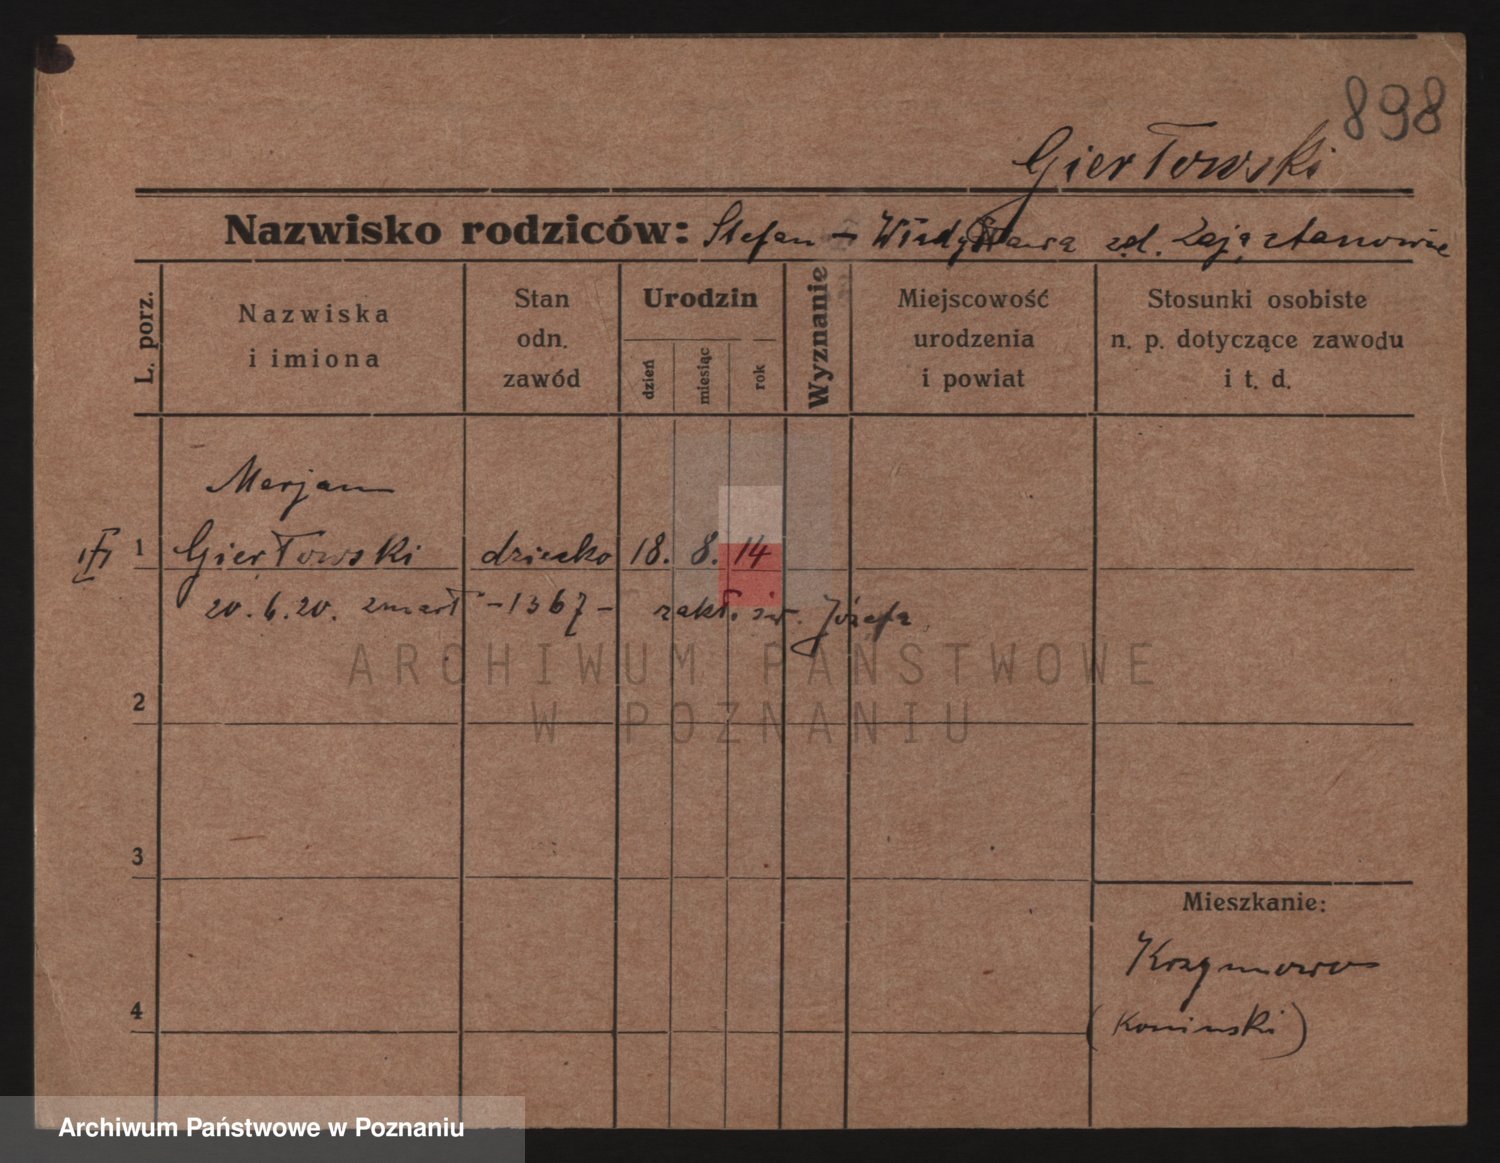 898
Gierłowski
Nazwisko rodziców: Stefan – Władysława zd.
L. porz.
Nazwiska
i imiona
Stan
odn.
zawód
Urodzin
dzień
miesiąc
rok
Wyznanie
Miejscowość
urodzenia
i powiat
Stosunki osobiste
n. p. dotyczące zawodu
i t. d.
Marjan
1 Gierłowski dziecko 18. 8. 14
20.6.20. zmarł -1367- zakł. św. Józefa
ARCHIWUM PAŃSTWOWE
W POZNANIU
2
3
Mieszkanie:
Krzymowo
4
(Koniński)
Archiwum Państwowe w Poznaniu